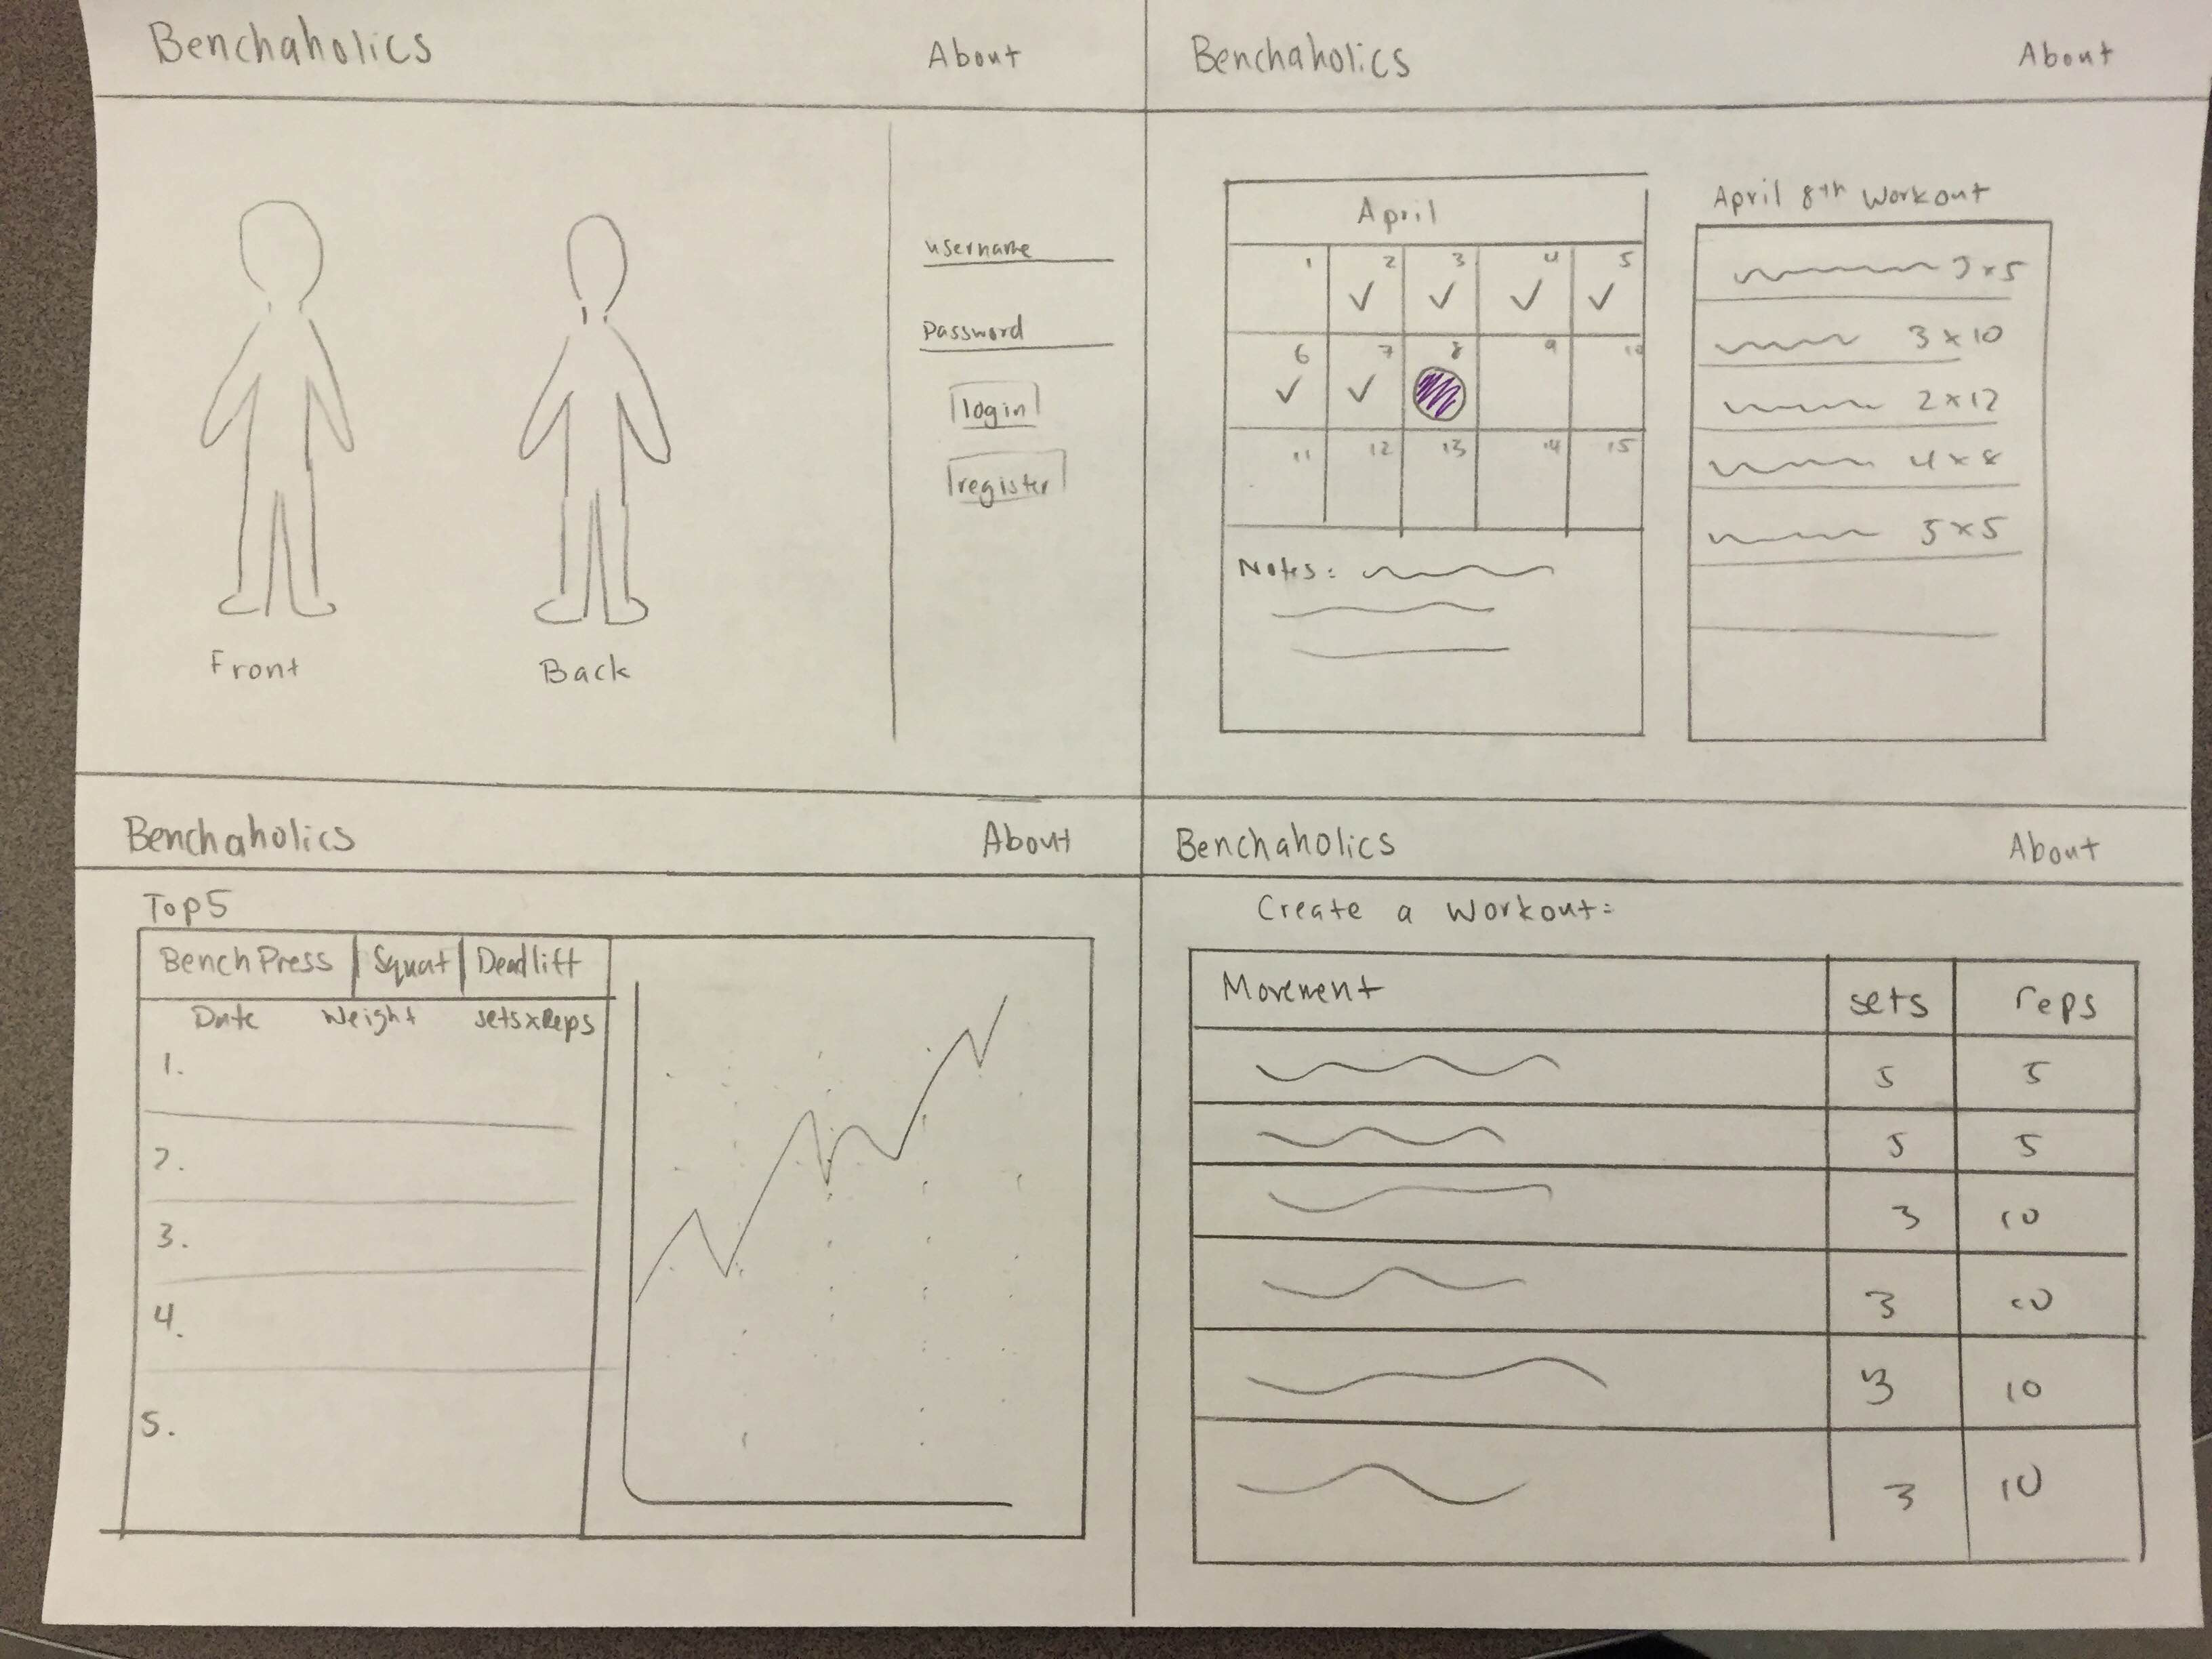 Benchaholics About
username
password
login
register
Front Back
Benchaholics About
April
1 2 3 4 5
6 7 8 9 10
11 12 13 14 15
Notes:
April 8th Workout
3 x 10
2 x 12
4 x 8
5 x 5
Benchaholics About
Top 5
Bench Press Squat Deadlift
Date Weight sets x Reps
1.
2.
3.
4.
5.
Benchaholics About
Create a Workout:
Movement sets reps
5 5
5 5
3 10
3 10
3 10
3 10